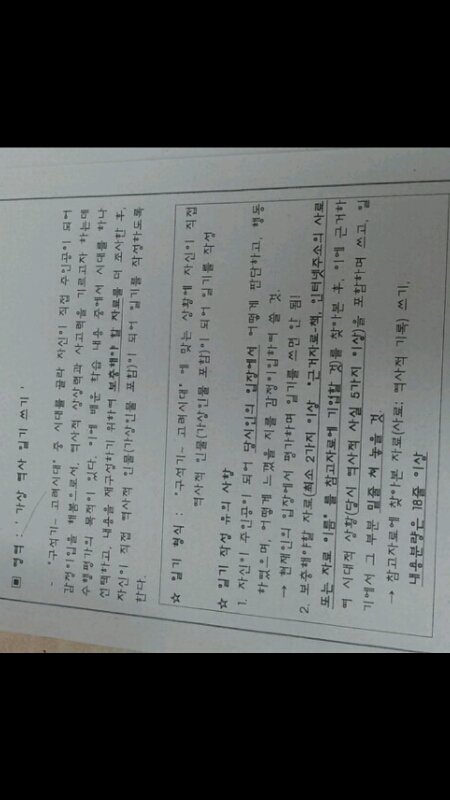 ▣ 영역 : ' 가상 역사 일기 쓰기 '
- "구석기~ 고려시대" 중 시대를 골라 자신이 직접 주인공이 되어
감정이입을 해봄으로서, 역사적 상상력과 사고력을 기르고자 하는데
수행평가의 목적이 있다. 이에 배운 학습 내용 중에서 시대를 하나
선택하고, 내용을 재구성하기 위하여 보충해야 할 자료를 더 조사한 후,
자신이 직접 역사적 인물(가상인물 포함)이 되어 일기를 작성하도록
한다.
☆ 일기 형식 : "구석기~ 고려시대" 에 맞는 상황에 자신이 직접
역사적 인물(가상인물 포함)이 되어 일기를 작성
☆ 일기 작성 유의 사항
1. 자신이 주인공이 되어 당시인의 입장에서 어떻게 판단하고, 행동
하였으며, 어떻게 느꼈을 지를 감정이입하여 쓸 것.
→ 현재인의 입장에서 평가하며 일기를 쓰면 안 됨!
2. 보충해야할 자료(최소 2가지 이상 "근거자료-책, 인터넷주소의 사료
또는 자료 이름" 를 참고자료에 기입할 것)를 찾아본 후, 이에 근거하
여 시대적 상황(당시 역사적 사실 5가지 이상)을 포함하며 쓰고, 일
기에서 그 부분 밑줄 쳐 놓을 것.
→ 참고자료에 찾아본 자료(사료: 역사적 기록) 쓰기.
내용분량은 18줄 이상